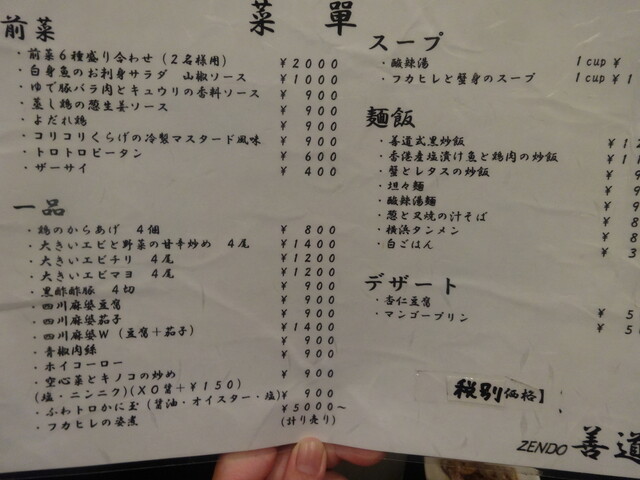 菜單
前菜
・前菜6種盛り合わせ(2名様用) ¥2000
・白身魚のお刺身サラダ 山椒ソース ¥1000
・ゆで豚バラ肉とキュウリの香料ソース ¥900
・蒸し鶏の葱生姜ソース ¥900
・よだれ鶏 ¥900
・コリコリくらげの冷製マスタード風味 ¥900
・トロトロピータン ¥600
・ザーサイ ¥400
一品
・鶏のからあげ 4個 ¥800
・大きいエビと野菜の甘辛炒め 4尾 ¥1400
・大きいエビチリ 4尾 ¥1200
・大きいエビマヨ 4尾 ¥1200
・黒酢酢豚 4切 ¥900
・四川麻婆豆腐 ¥900
・四川麻婆茄子 ¥900
・四川麻婆W(豆腐+茄子) ¥1400
・青椒肉絲 ¥900
・ホイコーロー ¥900
・空心菜とキノコの炒め ¥900
(塩・ニンニク)(XO醤+¥150)
・ふわトロかに玉(醤油・オイスター・塩) ¥900
・フカヒレの姿煮 ¥5000～
(計り売り)
スープ
・酸辣湯 1cup ¥
・フカヒレと蟹身のスープ 1cup ¥1
麺飯
・善道式黒炒飯 ¥1
・香港産塩漬け魚と鶏肉の炒飯 ¥1
・蟹とレタスの炒飯 ¥9
・坦々麺 ¥9
・酸辣湯麺 ¥9
・葱と叉焼の汁そば ¥8
・横浜タンメン ¥8
・白ごはん ¥3
デザート
・杏仁豆腐 ¥5
・マンゴープリン ¥5
税別価格】
ZENDO 善道